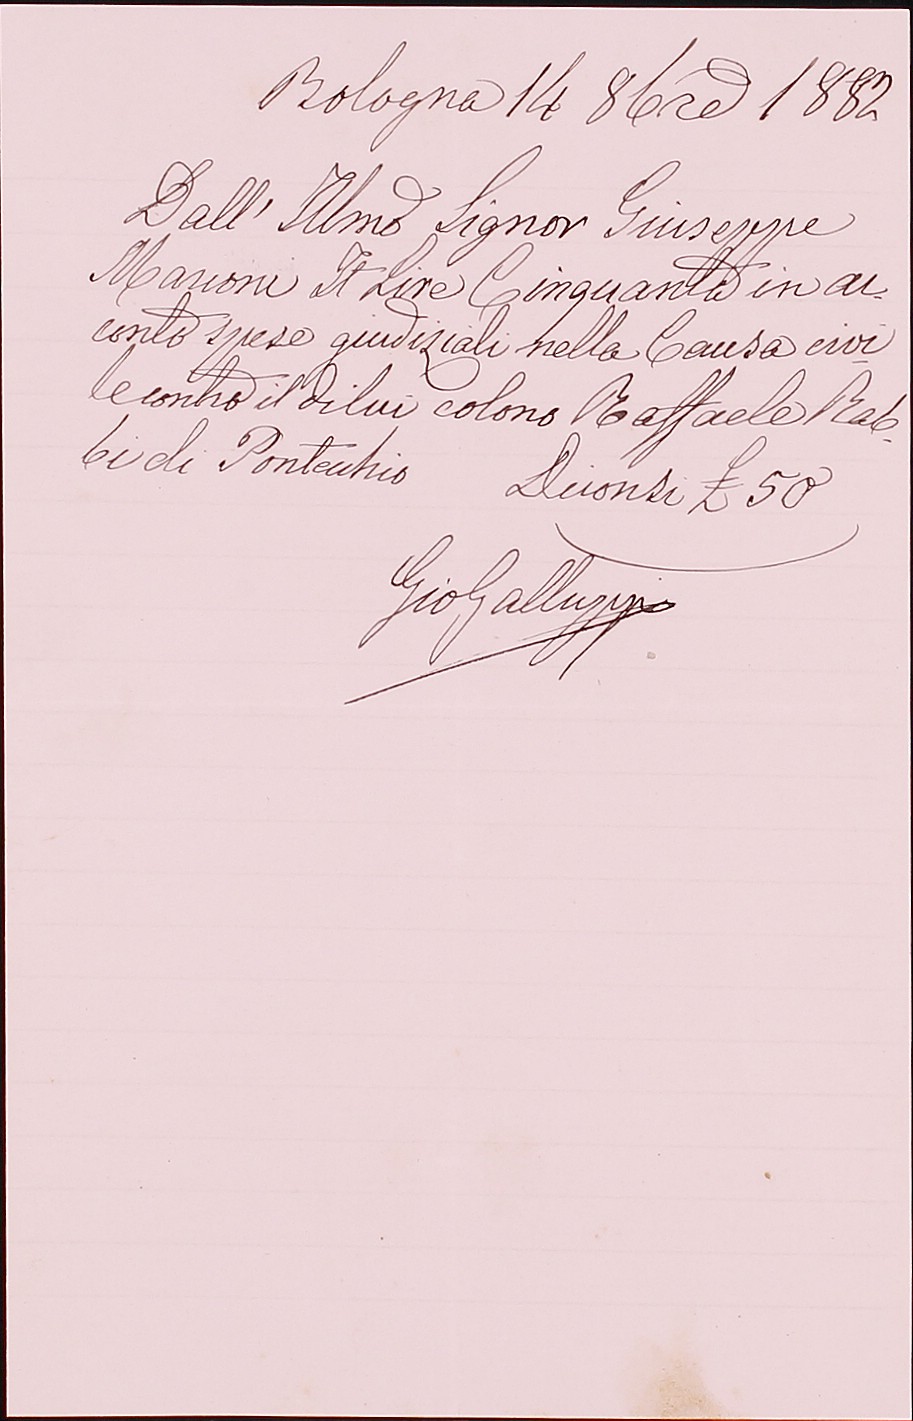 Bologna 14 8bre 1882
Dall' Illmo Signor Giuseppe
Marconi It Lire Cinquanta in ac-
conto spese giudiziali nella Causa civi
le contro il di lui colono Raffaele Rab-
bi di Pontecchio Diconsi £ 50
Gio Galluzzi